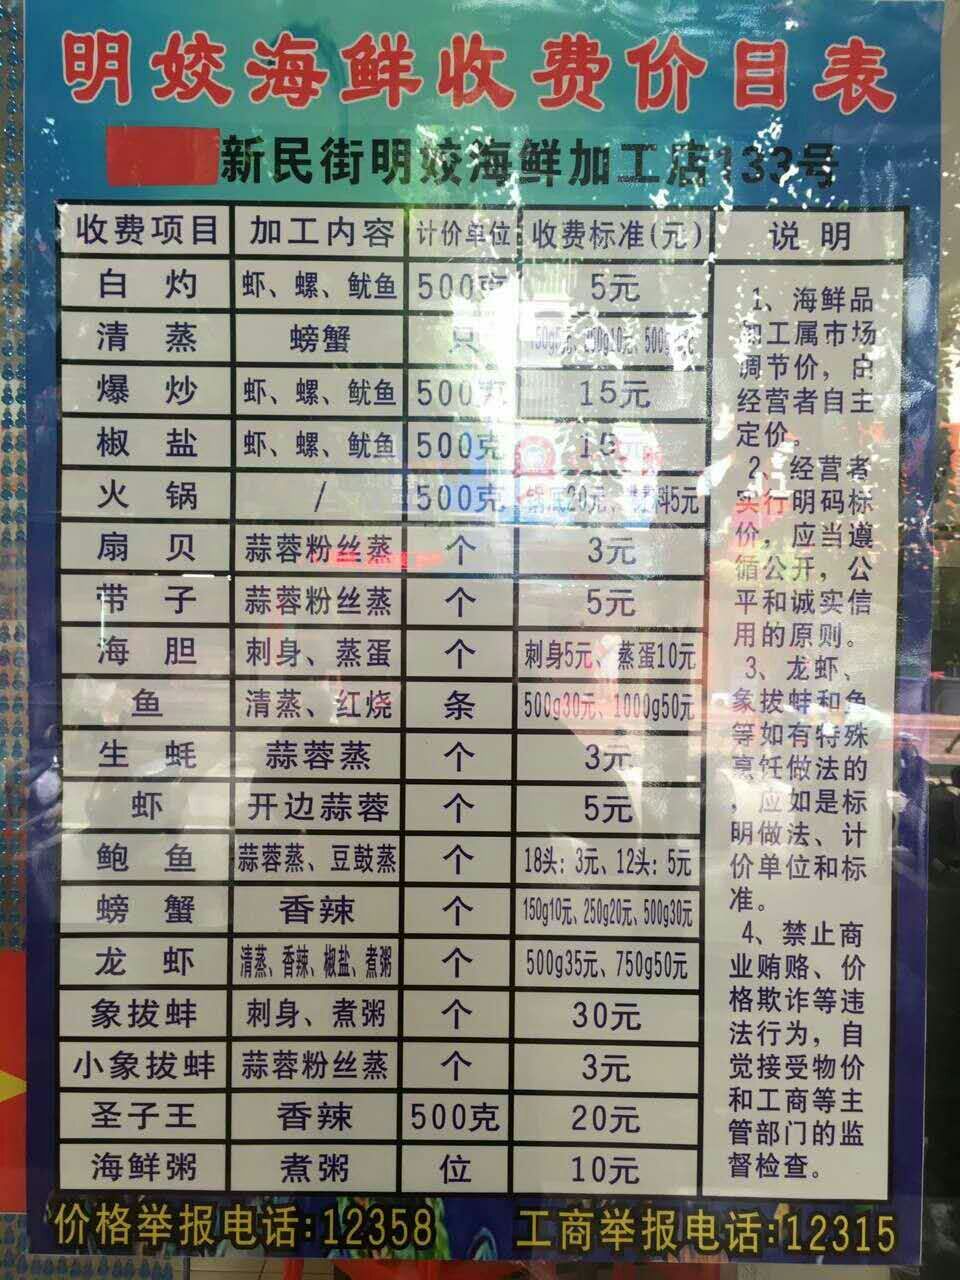 明姣海鲜收费价目表
新民街明姣海鲜加工店133号
收费项目 加工内容 计价单位 收费标准(元) 说明
白灼 虾、螺、鱿鱼 500克 5元
清蒸 螃蟹 只
爆炒 虾、螺、鱿鱼 500克 15元
椒盐 虾、螺、鱿鱼 500克 15元
火锅 / 500克 锅底20元、材料5元
扇贝 蒜蓉粉丝蒸 个 3元
带子 蒜蓉粉丝蒸 个 5元
海胆 刺身、蒸蛋 个 刺身5元、蒸蛋10元
鱼 清蒸、红烧 条 500g30元、1000g50元
生蚝 蒜蓉蒸 个 3元
虾 开边蒜蓉 个 5元
鲍鱼 蒜蓉蒸、豆鼓蒸 个 18头:3元,12头:5元
螃蟹 香辣 个 150g10元、250g20元、500g30元
龙虾 清蒸、香辣、椒盐、煮粥 个 500g35元、750g50元
象拔蚌 刺身、煮粥 个 30元
小象拔蚌 蒜蓉粉丝蒸 个 3元
圣子王 香辣 500克 20元
海鲜粥 煮粥 位 10元
1、海鲜品
加工属市场
调节价,由
经营者自主
定价。
2、经营者
实行明码标
价,应当遵
循公开,公
平和诚实信
用的原则。
3、龙虾、
象拔蚌和鱼
等如有特殊
烹饪做法的
,应如是标
明做法、计
价单位和标
准。
4、禁止商
业贿赂、价
格欺诈等违
法行为,自
觉接受物价
和工商等主
管部门的监
督检查。
价格举报电话:12358 工商举报电话:12315